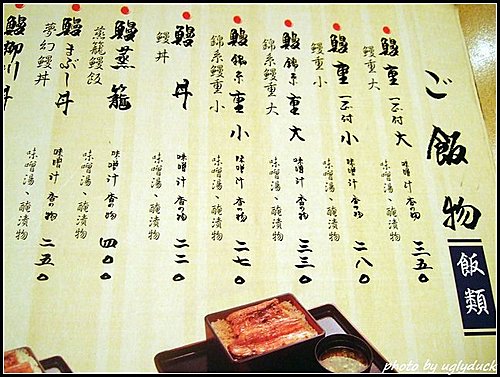 ご飯物
飯類
鰻重 一品付 大
鰻重 大
味噌汁 香の物
味噌湯、醃漬物
三五0
鰻重 一品付 小
鰻重 小
味噌汁 香の物
味噌湯、醃漬物
二八0
鰻錦糸重 大
錦糸鰻重 大
味噌汁 香の物
味噌湯、醃漬物
三三0
鰻錦糸重 小
錦糸鰻重 小
味噌汁 香の物
味噌湯、醃漬物
二七0
鰻丼
鰻丼
味噌汁 香の物
味噌湯、醃漬物
二二0
鰻蒸籠
蒸籠鰻飯
味噌汁 香の物
味噌湯、醃漬物
四00
鰻まぶし丼
夢幻鰻丼
味噌汁 香の物
味噌湯、醃漬物
二五0
鰻柳川丼
photo by uglyduck